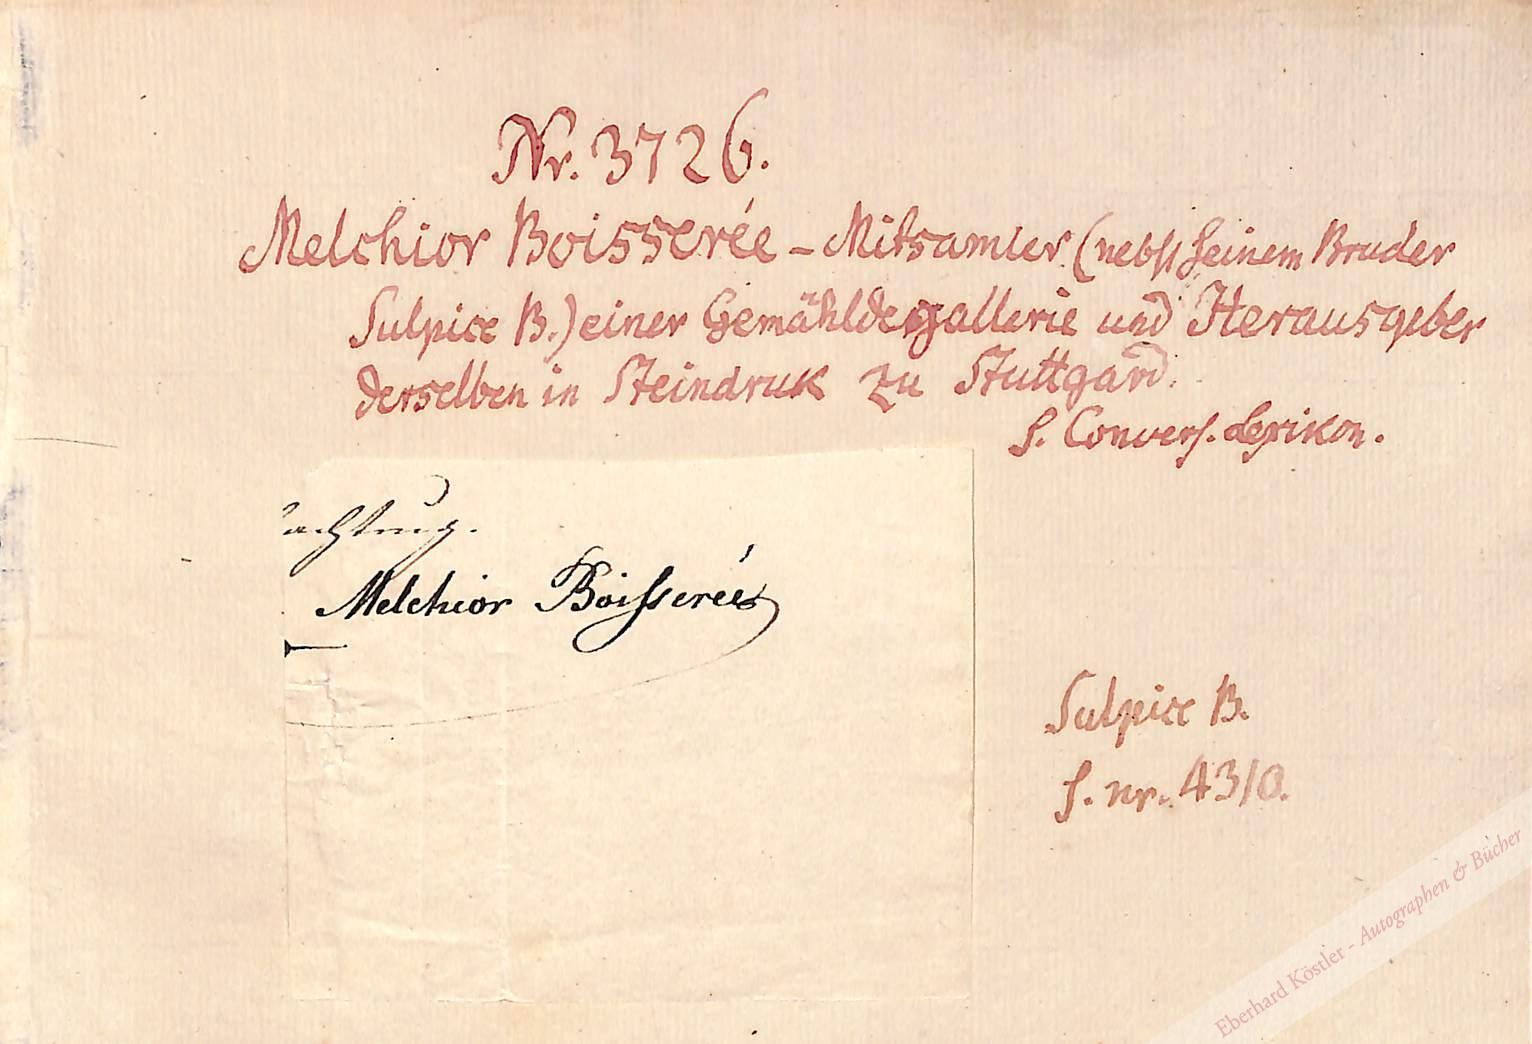 Nr. 3726.
Melchior Boisserée – Mitsamler (nebst seinem Bruder
Sulpice B.) einer Gemähldegallerie und Herausgeber
derselben in Steindruk zu Stuttgard.
s. Convers. Lexikon.
achtung.
Melchior Boisserée
Sulpice B.
s. nr. 4310.
Eberhard Köstler - Autographen & Bücher